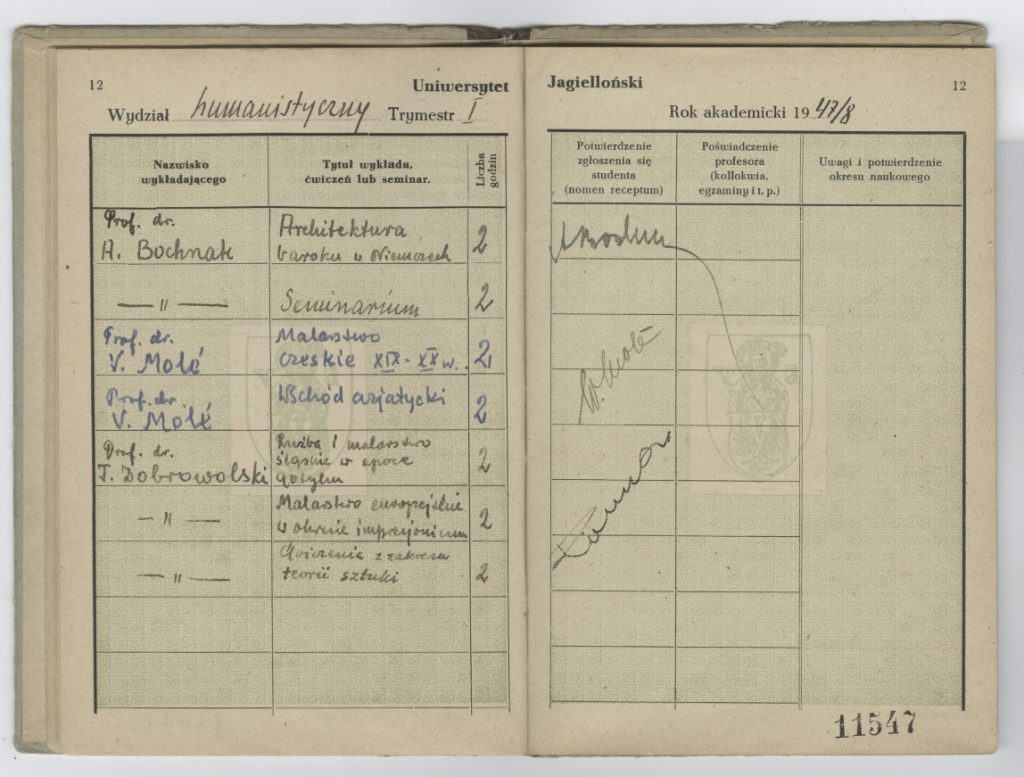 12
Uniwersytet
Wydział humanistyczny Trymestr I
Nazwisko
wykładającego
Tytuł wykładu,
ćwiczeń lub seminar.
Liczba
godzin
Prof. dr.
A. Bochnak
Architektura
baroku w Niemczech
2
— " —
Seminarium
2
Prof. dr.
V. Molé
Malarstwo
czeskie XIX - XX w.
2
Prof. dr.
V. Molé
Wschód azjatycki
2
Prof. dr.
T. Dobrowolski
Rzeźba i malarstwo
śląskie w epoce
gotyku
2
— " —
Malarstwo europejskie
w okresie impresjonizmu
2
— " —
Ćwiczenia z zakresu
teorii sztuki
2
Jagielloński
12
Rok akademicki 1947/8
Potwierdzenie
zgłoszenia się
studenta
(nomen receptum)
Poświadczenie
profesora
(kollokwia,
egzaminy i t. p.)
Uwagi i potwierdzenie
okresu naukowego
V. Molé
11547